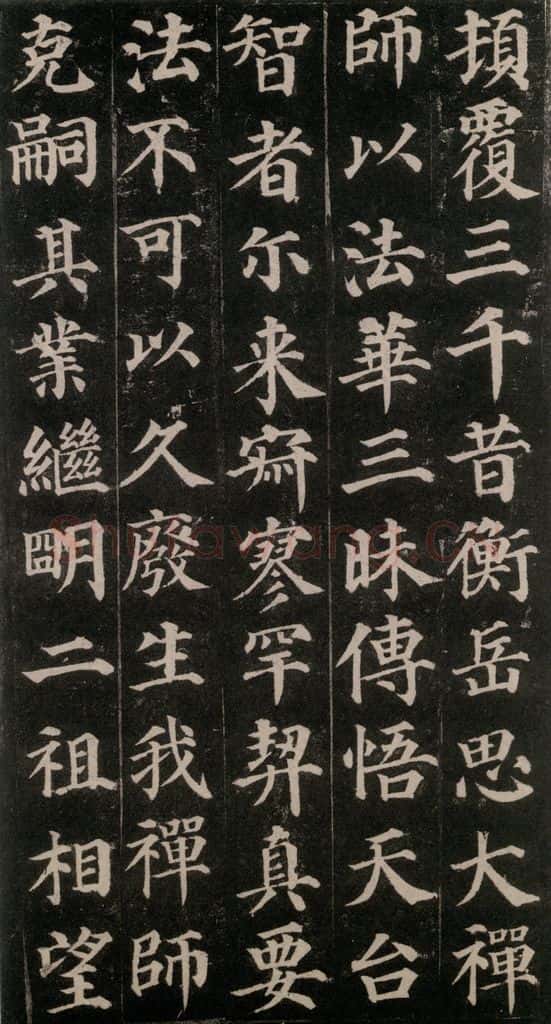 頂覆三千昔衡岳思大禪
師以法華三昧傳悟天台
智者尒来寂寥罕契真要
法不可以久廢生我禪師
克嗣其業繼明二祖相望
shufawang.cn